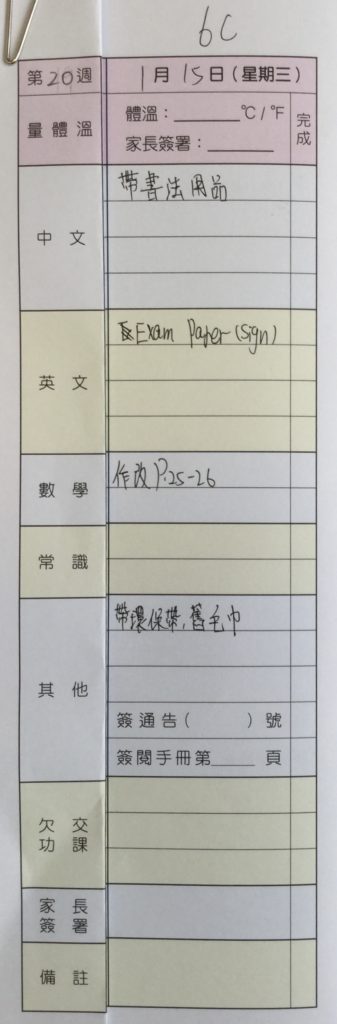 6C
第20週 1月15日(星期三)
量體溫 體溫:______℃/℉ 完成
家長簽署:______
中文 帶書法用品
英文 Exam Paper (sign)
數學 作改P.25-26
常識
其他 帶環保帶,舊毛巾
簽通告( )號
簽閱手冊第____頁
欠交功課
家長簽署
備註